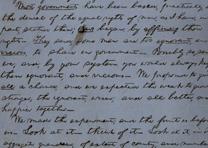 Most governments have been based, practically, on
the denial of the equal rights of men, as I have, in
part, stated them; ours began, by affirming those
rights. They said, some men are too ignorant, and
vicious, to share in government. Possibly so, said
we; and, by your system, you would always keep
them ignorant, and vicious. We proposed to give
all a chance; and we expected the weak to grow
stronger, the ignorant, wiser; and all better, and
happier together.
We made the experiment; and the fruit is before
us. Look at it think of it. Look at it, in its
aggregate grandeur, of extent of country, and numbers